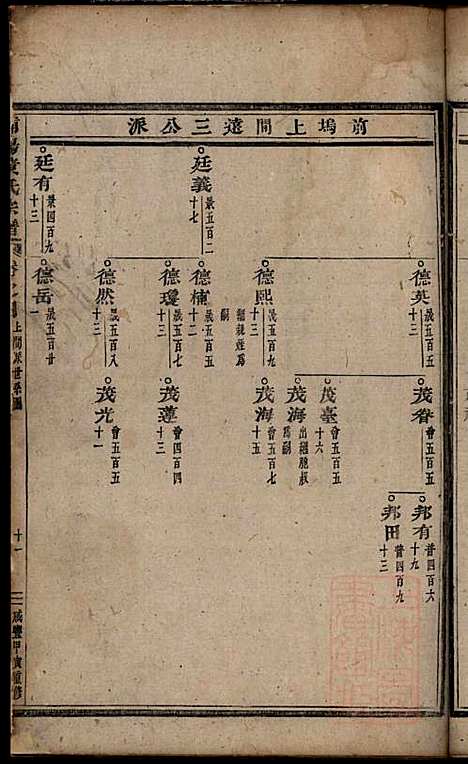 前塢上間遠三公派
廷義
景五百二
十七
廷有
景四百九
十三
德英
晟五百五
十三
德熙
晟五百九
十三
繼親姪為
嗣
德楠
晟五百五
十二
德瓊
晟五百七
十三
德然
晟五百八
十三
德岳
晟五百廿
一
茂眷
會五百五
茂臺
會五百五
十六
茂海
出繼胞叔
為嗣
茂海
會五百七
十五
茂蓮
會四百四
十三
茂光
會五百五
十一
邦有
普四百六
十九
邦田
普四百九
十三
氏宗譜
卷之
上間派世系圖
十一
咸豐甲寅重修